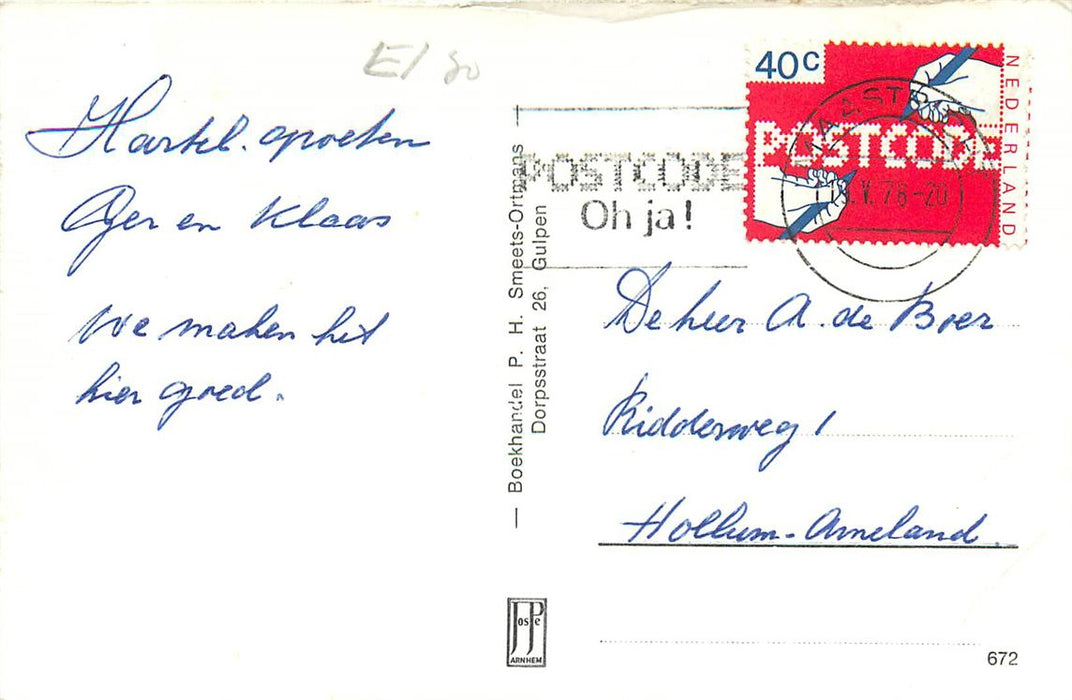 Hartel. groeten
Ger en Klaas
We maken het
hier goed.
— Boekhandel P. H. Smeets-Ortmans —
Dorpsstraat 26, Gulpen
40c
NEDERLAND
POSTCODE
POSTCODE
Oh ja!
V.78-20
De heer A. de Boer
Ridderweg 1
Hollum-Ameland.
JosPe
ARNHEM
672